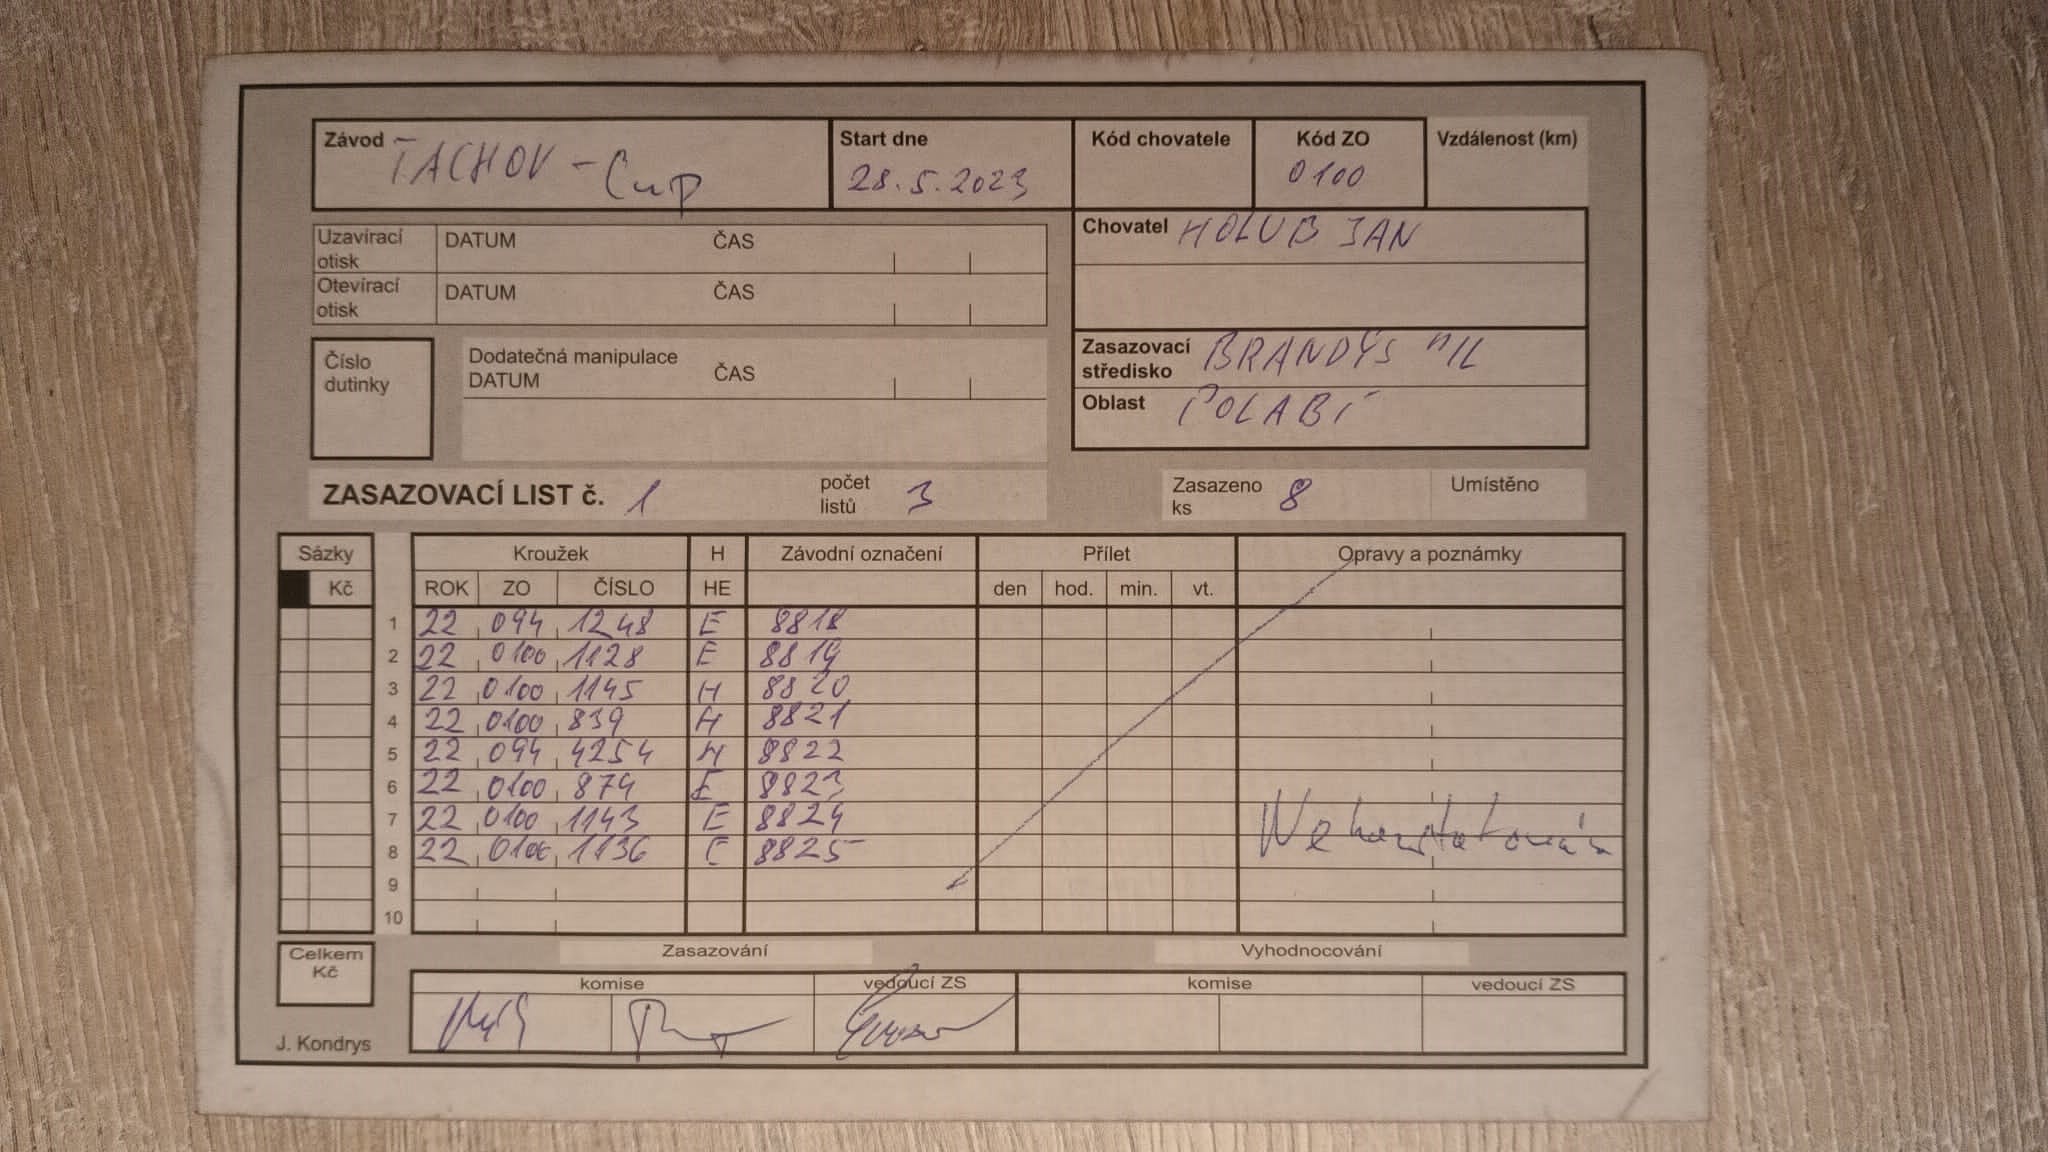 Závod TACHOV - Cup Start dne 28.5.2023 Kód chovatele Kód ZO 0100 Vzdálenost (km)
Uzavírací otisk DATUM ČAS
Otevírací otisk DATUM ČAS
Chovatel HOLUB JAN
Číslo dutinky
Dodatečná manipulace
DATUM ČAS
Zasazovací středisko BRANDÝS n/L
Oblast POLABÍ
ZASAZOVACÍ LIST č. 1 počet listů 3 Zasazeno ks 8 Umístěno
Sázky Kroužek H Závodní označení Přílet Opravy a poznámky
Kč ROK ZO ČÍSLO HE den hod. min. vt.
1 22 094 1248 E 8818
2 22 0100 1128 E 8819
3 22 0100 1145 H 8820
4 22 0100 839 H 8821
5 22 094 4254 H 8822
6 22 0100 874 E 8823
7 22 0100 1143 E 8824
8 22 0100 1136 E 8825
9
10
Celkem Kč
Zasazování Vyhodnocování
komise vedoucí ZS komise vedoucí ZS
J. Kondrys